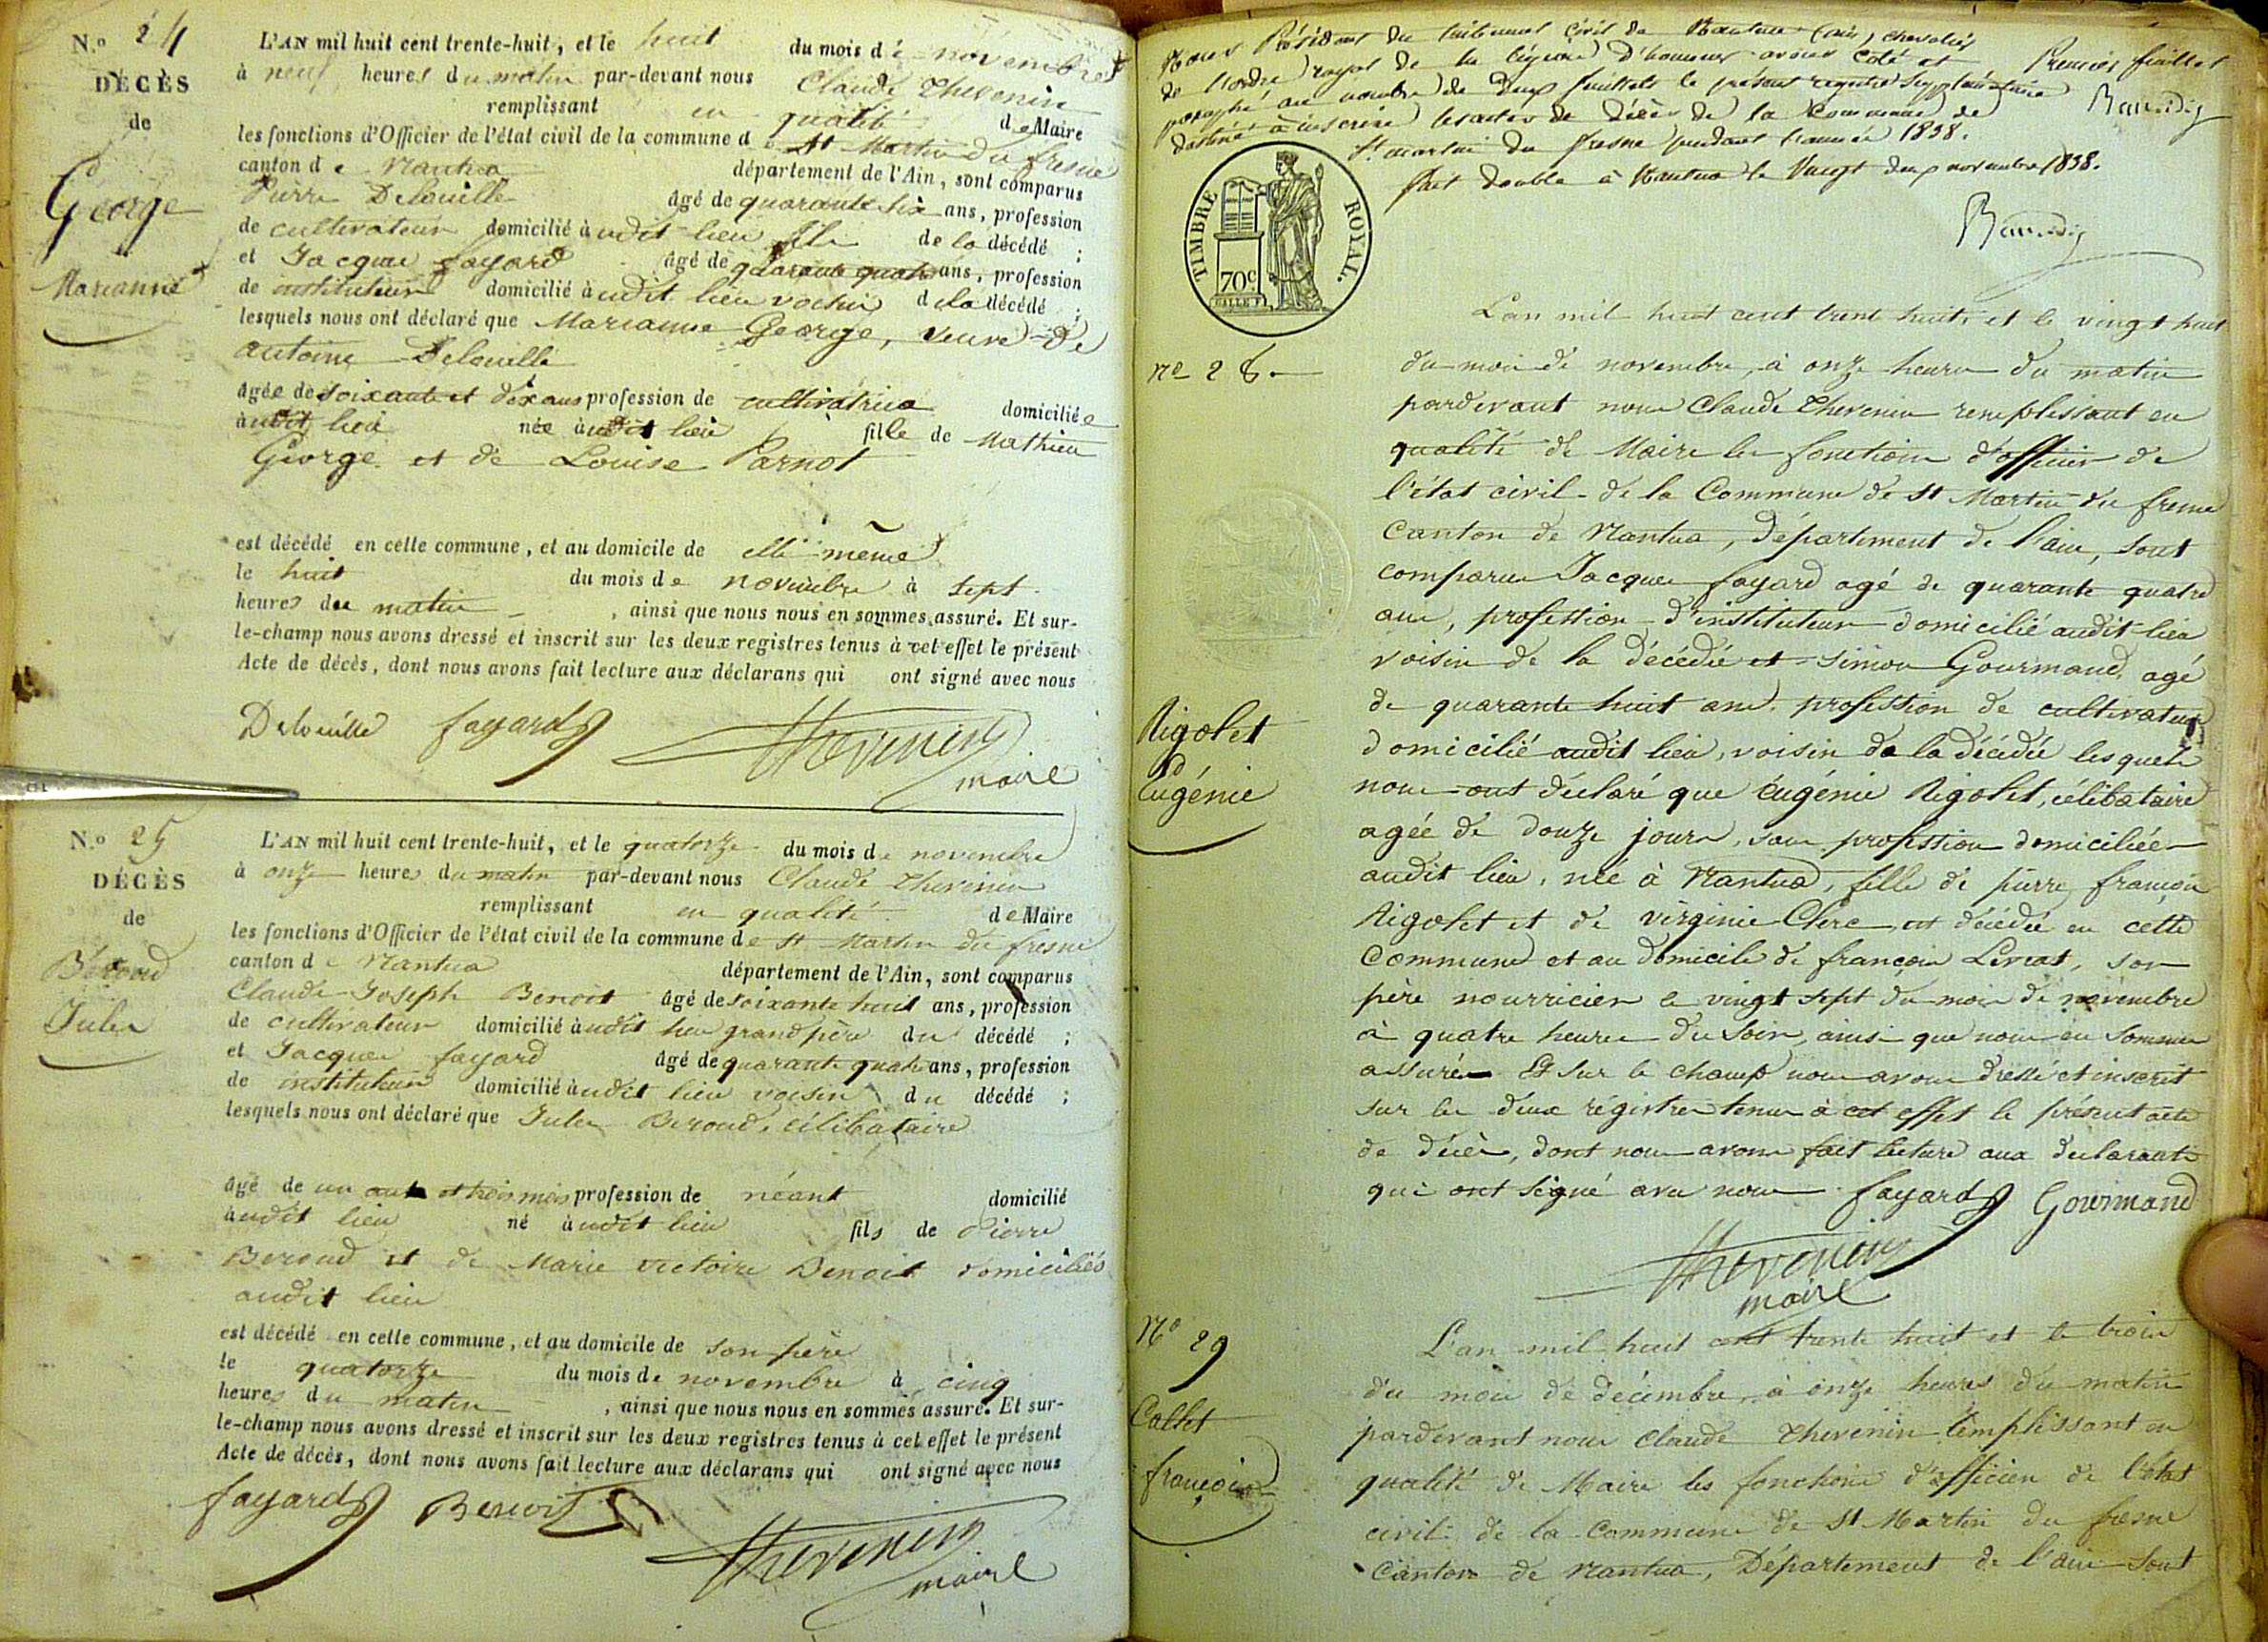 N.o 24
DÉCÈS
de
George
Marianne
L'AN mil huit cent trente-huit, et le huit du mois de novembre
à neuf heures du matin par-devant nous Claude Thevenin
remplissant en qualité de Maire
les fonctions d'Officier de l'état civil de la commune de St Martin du fresne
canton de Nantua département de l'Ain, sont comparus
Pierre Delouille âgé de quarante six ans, profession
de cultivateur domicilié audit lieu fils de la décédé ;
et Jacques fayard âgé de quarante quatre ans, profession
de instituteur domicilié audit lieu voisin de la décédé ;
lesquels nous ont déclaré que Marianne George, veuve de
antoine Delouille
âgée de soixante et dix ans profession de cultivatrice domiciliée
audit lieu née audit lieu fille de Mathieu
George et de Louise Parnot
est décédé en cette commune, et au domicile de elle même
le huit du mois de novembre à sept
heures du matin, ainsi que nous nous en sommes assuré. Et sur-
le-champ nous avons dressé et inscrit sur les deux registres tenus à cet effet le présent
Acte de décès, dont nous avons fait lecture aux déclarans qui ont signé avec nous
Delouille fayard Thevenin
maire
N.o 25
DÉCÈS
de
Béroud
Jules
L'AN mil huit cent trente-huit, et le quatorze du mois de novembre
à onze heures du matin par-devant nous Claude Thevenin
remplissant en qualité de Maire
les fonctions d'Officier de l'état civil de la commune de St Martin du fresne
canton de Nantua département de l'Ain, sont comparus
Claude Joseph Benoit âgé de soixante huit ans, profession
de cultivateur domicilié audit lieu grand père du décédé ;
et Jacques fayard âgé de quarante quatre ans, profession
de instituteur domicilié audit lieu voisin du décédé ;
lesquels nous ont déclaré que Jules Beroud, célibataire
âgé de un an et trois mois profession de néant domicilié
audit lieu né audit lieu fils de Pierre
Beroud et de Marie victoire Benoit domiciliés
audit lieu
est décédé en cette commune, et au domicile de son père
le quatorze du mois de novembre à cinq
heures du matin, ainsi que nous nous en sommes assuré. Et sur-
le-champ nous avons dressé et inscrit sur les deux registres tenus à cet effet le présent
Acte de décès, dont nous avons fait lecture aux déclarans qui ont signé avec nous
fayard Benoit
Thevenin
maire
Nous Président du tribunal civil de Nantua (ain) chevalier
de l'ordre royal de la légion d'honneur avons coté et
paraphé au nombre de deux feuillets le présent registre supplémentaire
destiné à inscrire les actes de décès de la Commune de
St martin du fresne pendant l'année 1838.
fait double à Nantua le Vingt deux novembre 1838.
Premier feuillet
TIMBRE ROYAL.
70c
No 28
Rigolet
Eugénie
L'an mil huit cent trent huit, et le vingt huit
du mois de novembre, à onze heures du matin
pardevant nous Claude Thevenin remplissant en
qualité de Maire les fonctions d'officier de
l'état civil de la Commune de St Martin du fresne
Canton de Nantua, département de l'ain, sont
comparus Jacques fayard agé de quarante quatre
ans, profession d'instituteur domicilié audit lieu
voisin de la décédée et simon Gourmand agé
de quarante huit ans profession de cultivateur
domicilié audit lieu, voisin de la décédée lesquels
nous ont déclaré que Eugénie Rigolet, célibataire
agée de douze jours, sans profession domiciliée
audit lieu, née à Nantua, fille de pierre françois
Rigolet et de virginie Clerc est décédée en cette
Commune et au domicile de françois Levrat, son
père nourricier le vingt sept du mois de novembre
à quatre heures du soir, ainsi que nous en sommes
assurés Et sur le champ nous avons dressé et inscrit
sur les deux régistres tenus à cet effet le présent acte
de décès, dont nous avons fait lecture aux declarants
qui ont signé avec nous fayard Gourmand
Thevenin
maire
No 29
Callet
françois
L'an mil huit cent trente huit et le trois
du mois de décembre, à onze heures du matin
pardevant nous Claude Thevenin remplissant en
qualité de Maire les fonctions d'officier de l'état
civil de la Commune de St Martin du fresne
Canton de Nantua, Département de l'ain sont